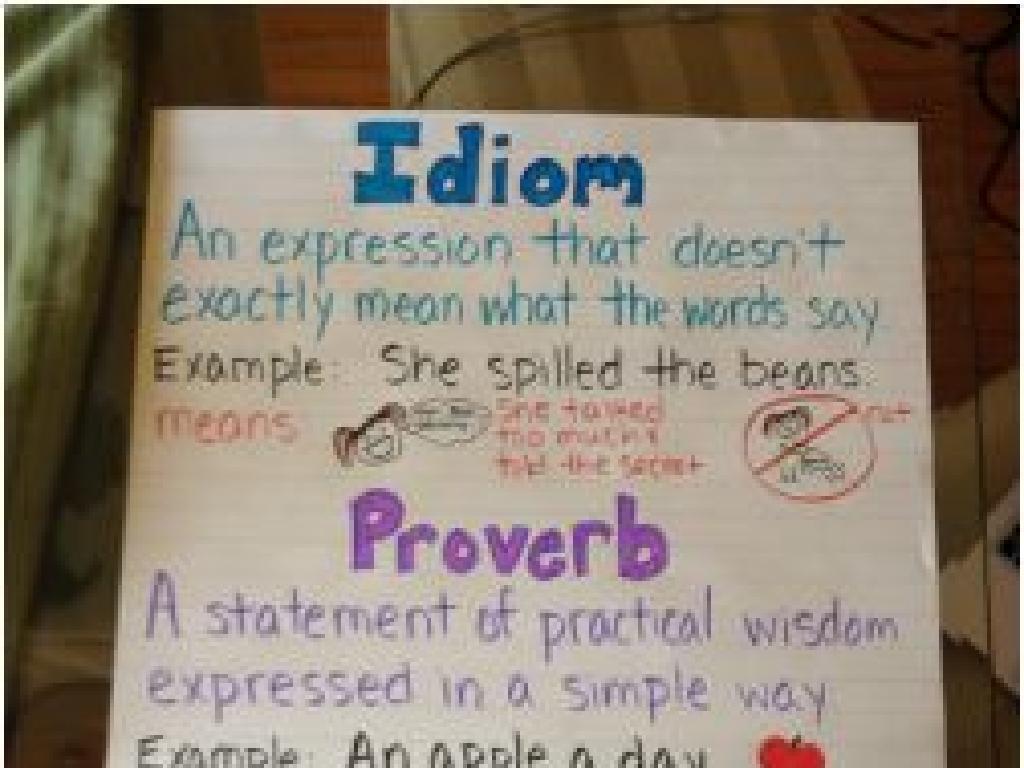 Idiom
An expression that doesn't
exactly mean what the words say
Example: She spilled the beans.
means
She talked
too much &
told the secret
not
Proverb
A statement of practical wisdom
expressed in a simple way
Example: An apple a day